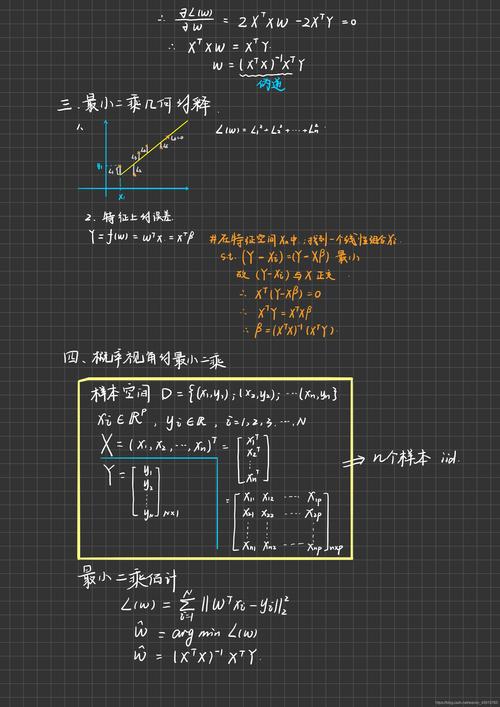 ∴ ∂L(w)/∂w = 2XᵀXW - 2XᵀY = 0
∴ XᵀXW = XᵀY
W = (XᵀX)⁻¹XᵀY
伪逆
三.最小二乘几何解释
1.
L(w) = L₁² + L₂² + ⋯ + Lₙ²
y₁
x₁
2. 特征上的误差.
Y = f(w) = wᵀx = xᵀβ
#在特征空间Xn中,找到一个线性组合Xi
s.t. (Y - Xi) = (Y - Xβ) 最小
故 (Y-Xi) 与 X 正交
∴ Xᵀ(Y-Xβ) = 0
∴ XᵀY = XᵀXβ
∴ β = (XᵀX)⁻¹(XᵀY)
四、概率视角的最小二乘
样本空间 D = {(x₁,y₁); (x₂,y₂); ⋯(xₙ,yₙ}
xi ∈ Rᴾ, yi ∈ R, i=1,2,3...,N
X = (x₁, x₂, ⋯, xₙ)ᵀ = [x₁ᵀ x₂ᵀ ⋮ xₙᵀ]
⇒ n个样本 iid.
Y = [y₁ y₂ ⋮ yₙ] N×1
= [x₁₁ x₁₂ ⋯ x₁p
x₂₁ x₂₂ ⋯ x₂p
⋮
xn₁ xn₂ ⋯ xnp] n×p
最小二乘估计
L(w) = Σᵢ₌₁ᴺ ||Wᵀxi - yi||₂²
Ŵ = arg min L(w)
Ŵ = (XᵀX)⁻¹XᵀY.